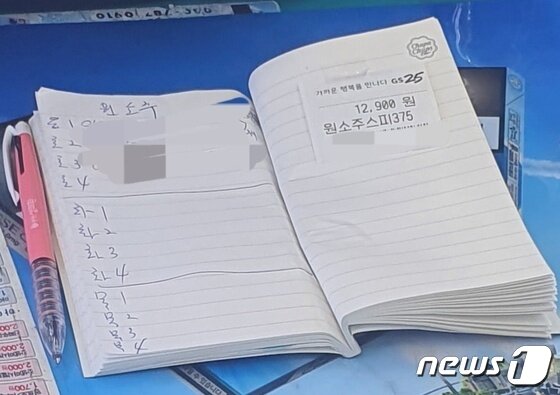 원소주
월 1
월 2
월 3
월 4
화 1
화 2
화 3
화 4
목 1
목 2
목 3
목 4
Chupa Chups
가까운 행복을 만나다 GS25
12,900 원
원소주스피375
2,000
2,000
1,700
news1